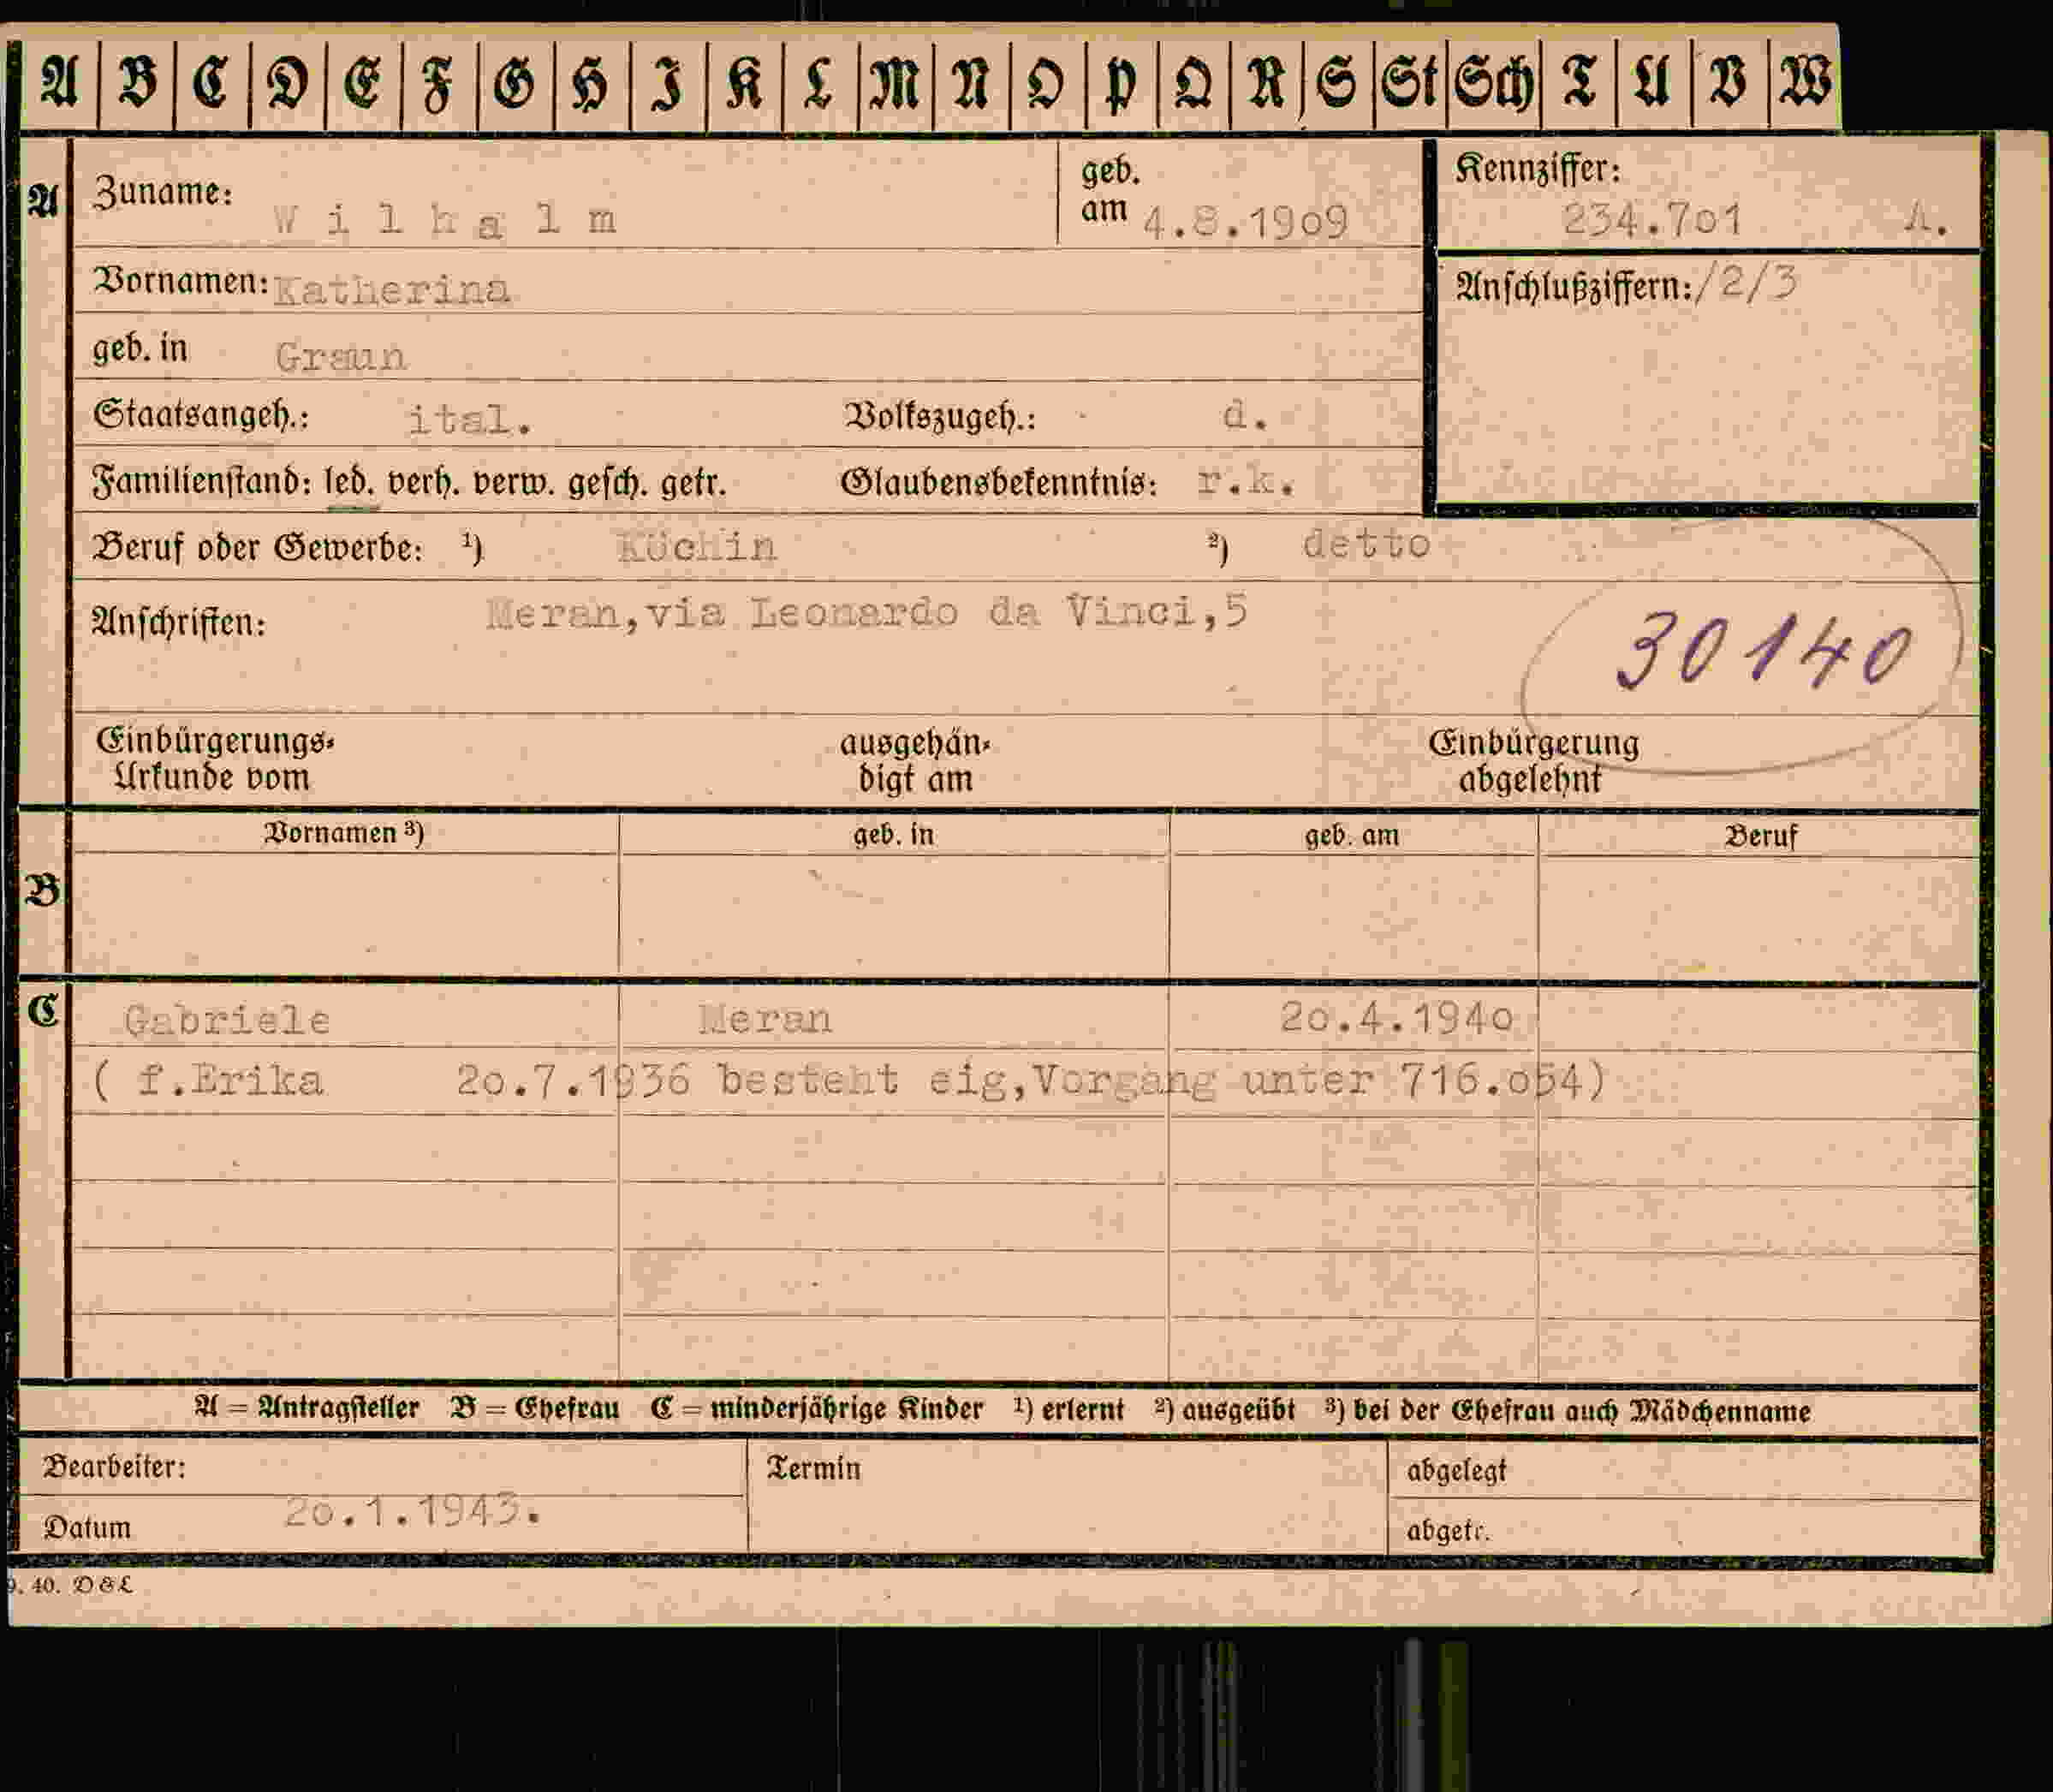 A B C D E F G H I K L M N O P Q R S St Sch T U V W
A Zuname: Wilhalm geb. am 4.8.1909 Kennziffer: 234.7o1 A.
Vornamen: Katherina Anschlußziffern: /2/3
geb. in Graun
Staatsangeh.: ital. Volkszugeh.: d.
Familienstand: led. verh. verw. gesch. getr. Glaubensbekenntnis: r.k.
Beruf oder Gewerbe: ¹) Köchin ²) detto
Anschriften: Meran,via Leonardo da Vinci,5
30140
Einbürgerungs- ausgehän- Einbürgerung
Urkunde vom digt am abgelehnt
Vornamen ³) geb. in geb. am Beruf
B
C Gabriele Meran 2o.4.194o
( f.Erika 2o.7.1936 besteht eig,Vorgang unter 716.o54)
A = Antragsteller B = Ehefrau C = minderjährige Kinder ¹) erlernt ²) ausgeübt ³) bei der Ehefrau auch Mädchenname
Bearbeiter: Termin abgelegt
Datum 2o.1.1943. abgetr.
9. 40. D & L